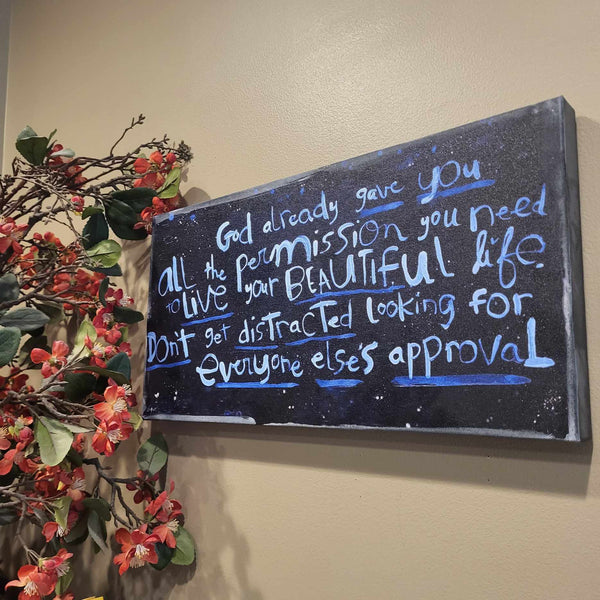 God already gave you
all the permission you need
to Live your BEAUTIFUL life.
Don't get distracted looking for
everyone else's approval